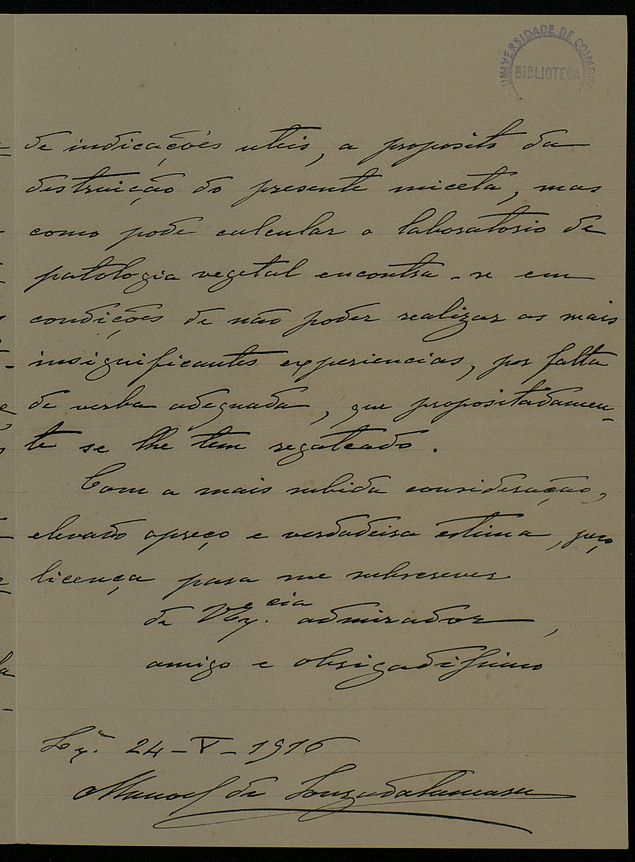 UNIVERSIDADE DE COIMBRA
BIBLIOTECA
de indicações uteis, a proposito da
destruição do presente miceta, mas
como pode calcular o laboratorio de
patologia vegetal encontra-se em
condições de não poder realizar as mais
insignificantes experiencias, por falta
de verba adequada, que propositadamen-
te se lhe tem regateado.
Com a mais subida consideração,
elevado apreço e verdadeira estima, peço
licença para me subscrever
de V. Ex.cia admirador,
amigo e obrigadissimo
Lx.ª 24-V-1916
Manoel de Souza da Camara